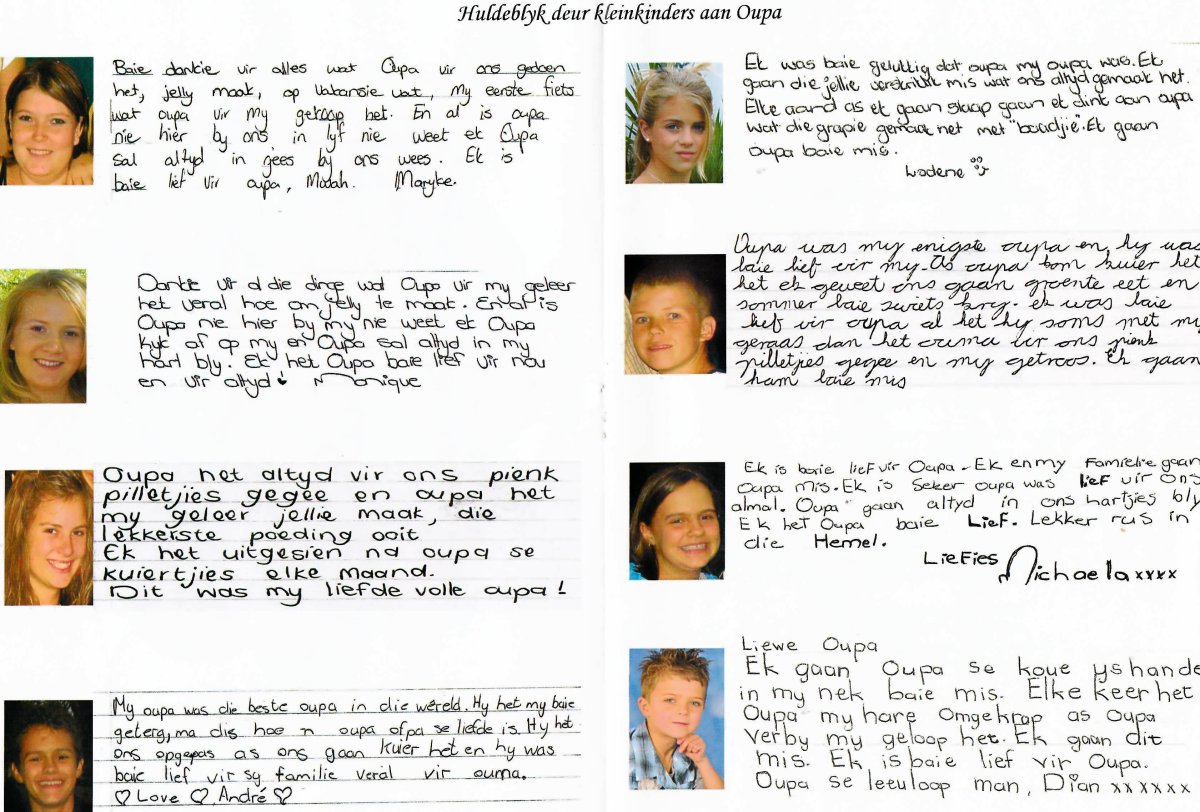 Huldeblyk deur kleinkinders aan Oupa
Baie dankie vir alles wat Oupa vir ons gedoen
het, jelly maak, op vakansie vat, my eerste fiets
wat oupa vir my gekoop het. En al is oupa
nie hier by ons in lyf nie weet ek Oupa
sal altyd in gees by ons wees. Ek is
baie lief vir oupa, Mwah. Maryke.
Dankie vir al die dinge wat Oupa vir my geleer
het veral hoe om jelly te maak. En al is
Oupa nie hier by my nie weet ek Oupa
kyk af op my en Oupa sal altyd in my
hart bly. Ek het Oupa baie lief vir nou
en vir altyd! Monique
Oupa het altyd vir ons pienk
pilletjies gegee en oupa het
my geleer jellie maak, die
lekkerste poeding ooit
Ek het uitgesien na oupa se
kuiertjies elke maand.
Dit was my liefde volle oupa!
My oupa was die beste oupa in die wêreld. Hy het my baie
geterg, ma dis hoe 'n oupa of pa se liefde is. Hy het
ons opgepas as ons gaan kuier het en hy was
baie lief vir sy familie veral vir ouma.
♡ Love ♡ André ♡
Ek was baie gelukkig dat oupa my oupa was. Ek
gaan die jellie verskriklik mis wat ons altyd gemaak het.
Elke aand as ek gaan slaap gaan ek dink aan oupa
wat die grapie gemaak het met "boudjie". Ek gaan
oupa baie mis.
Lodene
Oupa was my enigste oupa en hy was
baie lief vir my. As oupa kom kuier het
het ek geweet ons gaan groente eet en
sommer baie sweets kry. ek was baie
lief vir oupa al het hy soms met my
geraas dan het ouma vir ons pienk
pilletjies gegee en my getroos. Ek gaan
hom baie mis
Ek is baie lief vir Oupa. Ek en my Familie gaan
Oupa mis. Ek is seker oupa was lief vir ons
almal. Oupa gaan altyd in ons hartjies bly
Ek het Oupa baie Lief. Lekker rus in
die Hemel.
Liefies
Michaela xxxx
Liewe Oupa
Ek gaan Oupa se koue yshande
in my nek baie mis. Elke keer het
Oupa my hare omgekrap as Oupa
verby my geloop het. Ek gaan dit
mis. Ek is baie lief vir Oupa.
Oupa se leeuloop man, Dian xxxxxx